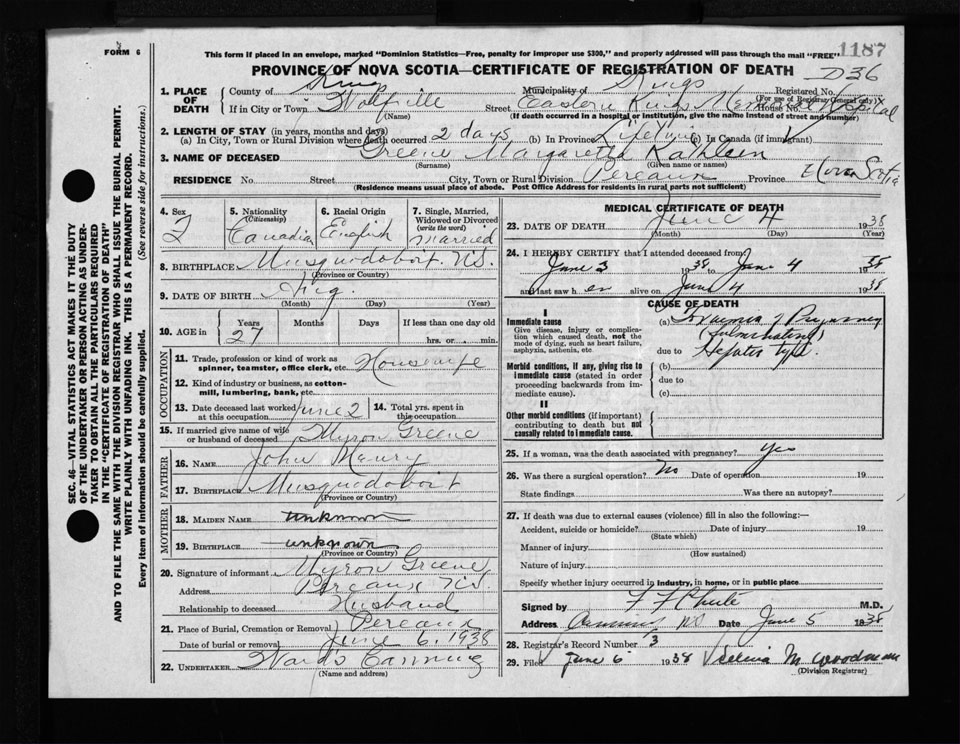 FORM 6
This form if placed in an envelope, marked "Dominion Statistics—Free, penalty for improper use $300," and properly addressed will pass through the mail "FREE"
1187
PROVINCE OF NOVA SCOTIA—CERTIFICATE OF REGISTRATION OF DEATH
D36
1. PLACE OF DEATH County of Kings Municipality of Kings Registered No.
(For use of Registrar General only)
If in City or Town Wolfville Street Eastern Kings Memorial Hospital House No.
(Name) (If death occurred in a hospital or institution, give the name instead of street and number)
2. LENGTH OF STAY (in years, months and days)
(a) In City, Town or Rural Division where death occurred 2 days (b) In Province Lifetime (c) In Canada (if immigrant)
3. NAME OF DECEASED Greene Margaretta Kathleen
(Surname) (Given name or names)
RESIDENCE No. Street City, Town or Rural Division Pereaux Province Nova Scotia
(Residence means usual place of abode. Post Office Address for residents in rural parts not sufficient)
4. Sex F
5. Nationality (Citizenship) Canadian
6. Racial Origin English
7. Single, Married, Widowed or Divorced (write the word) Married
8. BIRTHPLACE Musquodoboit. N.S.
(Province or Country)
9. DATE OF BIRTH Aug.
(Month) (Day) (Year)
10. AGE in Years 27 Months Days If less than one day old
hrs. or min.
OCCUPATION
11. Trade, profession or kind of work as spinner, teamster, office clerk, etc. Housewife
12. Kind of industry or business, as cotton-mill, lumbering, bank, etc.
13. Date deceased last worked at this occupation June 2
14. Total yrs. spent in this occupation
15. If married give name of wife or husband of deceased Myron Greene
FATHER
16. NAME John
17. BIRTHPLACE Musquodoboit
(Province or Country)
MOTHER
18. MAIDEN NAME unknown
19. BIRTHPLACE unknown
(Province or Country)
20. Signature of informant Myron Greene
Address Pereaux N.S.
Relationship to deceased Husband
21. Place of Burial, Cremation or Removal Pereaux
Date of burial or removal June 6, 1938
22. UNDERTAKER Ward's Canning
(Name and address)
MEDICAL CERTIFICATE OF DEATH
23. DATE OF DEATH June 4 1938
(Month) (Day) (Year)
24. I HEREBY CERTIFY that I attended deceased from
June 3 1938 to June 4 1938
and last saw her alive on June 4 1938
CAUSE OF DEATH
I
Immediate cause
Give disease, injury or complication which caused death, not the mode of dying, such as heart failure, asphyxia, asthenia, etc.
(a) of Pregnancy
(Fulminating)
due to Hepatic type.
Morbid conditions, if any, giving rise to immediate cause (stated in order proceeding backwards from immediate cause).
(b)
due to
(c)
II
Other morbid conditions (if important) contributing to death but not causally related to immediate cause.
25. If a woman, was the death associated with pregnancy? Yes
26. Was there a surgical operation? No Date of operation 19
State findings Was there an autopsy?
27. If death was due to external causes (violence) fill in also the following:—
Accident, suicide or homicide? Date of injury 19
(State which)
Manner of injury
(How sustained)
Nature of injury
Specify whether injury occurred in industry, in home, or in public place
Signed by F F Chute M.D.
Address Canning NS Date June 5 1938
28. Registrar's Record Number 3
29. Filed June 6 1938 M. Woodman
(Division Registrar)
SEC. 46—VITAL STATISTICS ACT MAKES IT THE DUTY
OF THE UNDERTAKER OR PERSON ACTING AS UNDER-
TAKER TO OBTAIN ALL THE PARTICULARS REQUIRED
IN THE "CERTIFICATE OF REGISTRATION OF DEATH"
AND TO FILE THE SAME WITH THE DIVISION REGISTRAR WHO SHALL ISSUE THE BURIAL PERMIT.
WRITE PLAINLY WITH UNFADING INK. THIS IS A PERMANENT RECORD.
Every item of information should be carefully supplied. (See reverse side for instructions.)